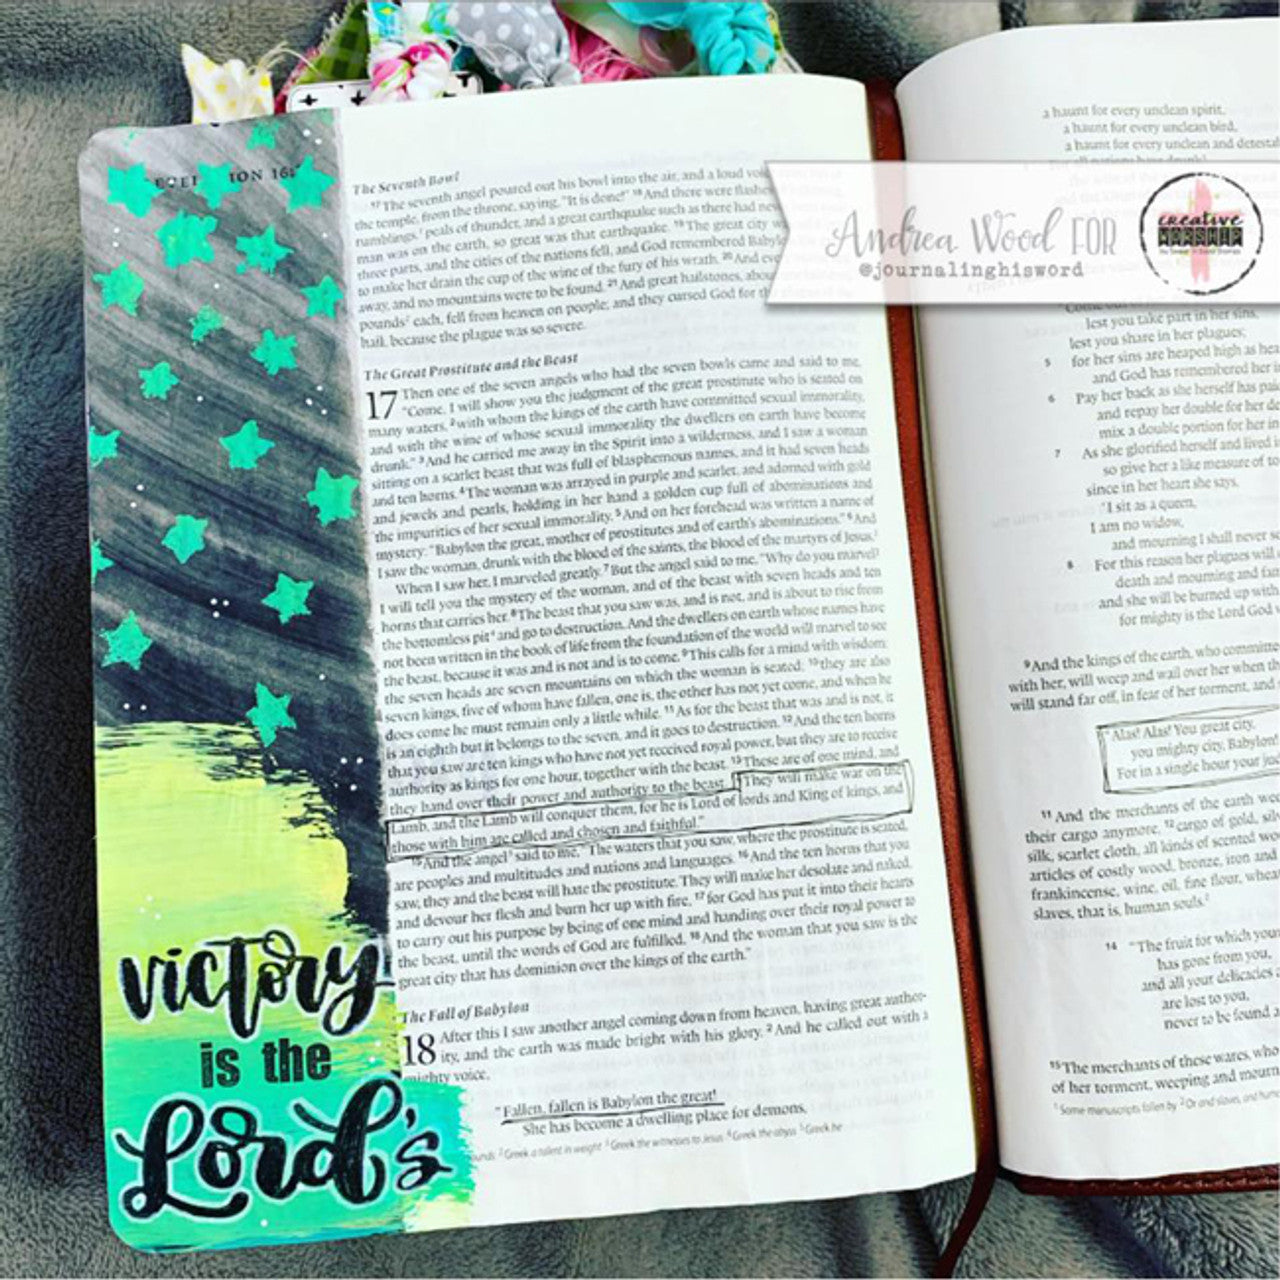 The Seventh Bowl
¹⁷The seventh angel poured out his bowl into the air, and a loud
the temple, from the throne, saying, "It is done!" ¹⁸And there were flashes
rumblings,¹ peals of thunder, and a great earthquake such as there had
man was on the earth, so great was that earthquake. ¹⁹The great city
three parts, and the cities of the nations fell, and God remembered
to make her drain the cup of the wine of the fury of his wrath. ²⁰And
away, and no mountains were to be found. ²¹And great hailstones,
pounds² each, fell from heaven on people; and they cursed God for
hail, because the plague was so severe.
The Great Prostitute and the Beast
17 Then one of the seven angels who had the seven bowls came and said to me,
"Come, I will show you the judgment of the great prostitute who is seated on
many waters, ²with whom the kings of the earth have committed sexual immorality,
and with the wine of whose sexual immorality the dwellers on earth have become
drunk." ³And he carried me away in the Spirit into a wilderness, and I saw a woman
sitting on a scarlet beast that was full of blasphemous names, and it had seven heads
and ten horns. ⁴The woman was arrayed in purple and scarlet, and adorned with gold
and jewels and pearls, holding in her hand a golden cup full of abominations and
the impurities of her sexual immorality. ⁵And on her forehead was written a name of
mystery: "Babylon the great, mother of prostitutes and of earth's abominations." ⁶And
I saw the woman, drunk with the blood of the saints, the blood of the martyrs of Jesus.³
When I saw her, I marveled greatly. ⁷But the angel said to me, "Why do you marvel?
I will tell you the mystery of the woman, and of the beast with seven heads and ten
horns that carries her. ⁸The beast that you saw was, and is not, and is about to rise from
the bottomless pit⁴ and go to destruction. And the dwellers on earth whose names have
not been written in the book of life from the foundation of the world will marvel to see
the beast, because it was and is not and is to come. ⁹This calls for a mind with wisdom:
the seven heads are seven mountains on which the woman is seated; ¹⁰they are also
seven kings, five of whom have fallen, one is, the other has not yet come, and when he
does come he must remain only a little while. ¹¹As for the beast that was and is not, it
is an eighth but it belongs to the seven, and it goes to destruction. ¹²And the ten horns
that you saw are ten kings who have not yet received royal power, but they are to receive
authority as kings for one hour, together with the beast. ¹³These are of one mind, and
they hand over their power and authority to the beast. They will make war on the
Lamb, and the Lamb will conquer them, for he is Lord of lords and King of kings, and
those with him are called and chosen and faithful."
¹⁵And the angel⁵ said to me, "The waters that you saw, where the prostitute is seated,
are peoples and multitudes and nations and languages. ¹⁶And the ten horns that you
saw, they and the beast will hate the prostitute. They will make her desolate and naked,
and devour her flesh and burn her up with fire, ¹⁷for God has put it into their hearts
to carry out his purpose by being of one mind and handing over their royal power to
the beast, until the words of God are fulfilled. ¹⁸And the woman that you saw is the
great city that has dominion over the kings of the earth."
The Fall of Babylon
18 After this I saw another angel coming down from heaven, having great author-
ity, and the earth was made bright with his glory. ²And he called out with a
mighty voice,
"Fallen, fallen is Babylon the great!
She has become a dwelling place for demons,
² Greek a talent in weight ³ Greek the witnesses to Jesus ⁴ Greek the abyss ⁵ Greek he
victory
is the
Lord's
a haunt for every unclean spirit,
a haunt for every unclean bird,
a haunt for every unclean and
Andrea Wood FOR
@journalinghisword
creative
WORSHIP
lest you take part in her sins,
lest you share in her plagues;
5 for her sins are heaped high as
and God has remembered her
6 Pay her back as she herself has
and repay her double for her
mix a double portion for her in
7 As she glorified herself and lived
so give her a like measure of
since in her heart she says,
'I sit as a queen,
I am no widow,
and mourning I shall never
8 For this reason her plagues will
death and mourning and
and she will be burned up with
for mighty is the Lord God
⁹And the kings of the earth, who
with her, will weep and wail over her when
will stand far off, in fear of her torment, and
"Alas! Alas! You great city,
you mighty city, Babylon!
For in a single hour your
¹¹And the merchants of the earth
their cargo anymore, ¹²cargo of gold,
silk, scarlet cloth, all kinds of scented
articles of costly wood, bronze, iron and
frankincense, wine, oil, fine flour,
slaves, that is, human souls.²
14 "The fruit for which your
has gone from you,
and all your delicacies
are lost to you,
never to be found
¹⁵The merchants of these wares, who
of her torment, weeping and
¹ Some manuscripts fallen by ² Or and slaves, and